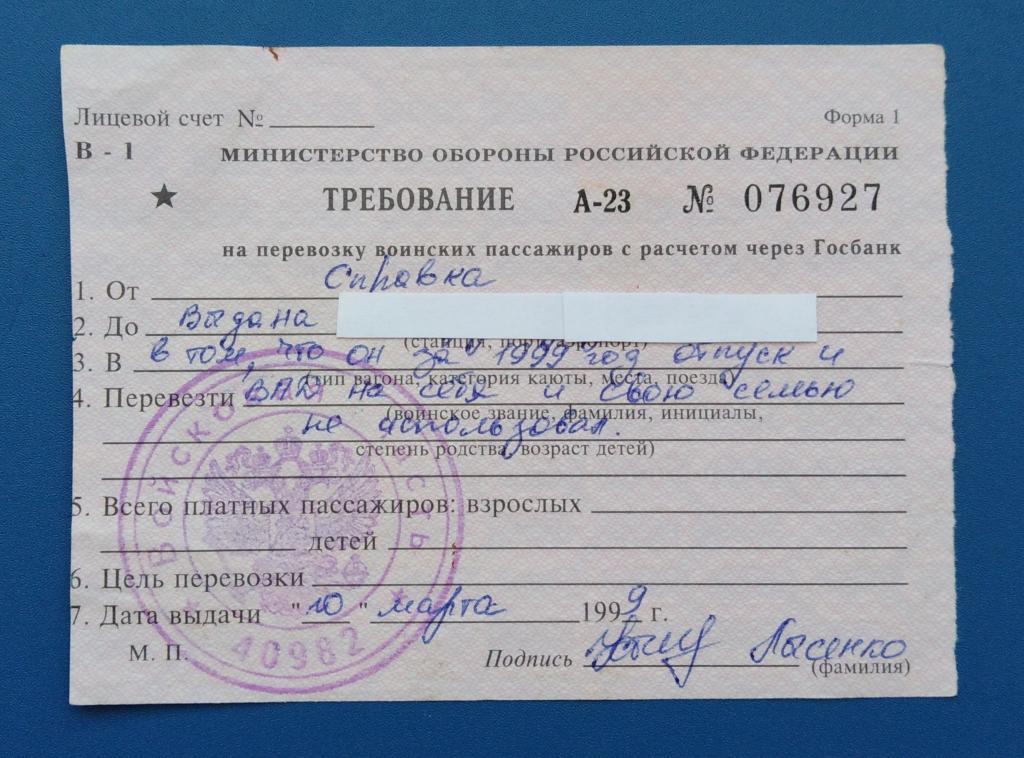 Лицевой счет № Форма 1
В - 1 МИНИСТЕРСТВО ОБОРОНЫ РОССИЙСКОЙ ФЕДЕРАЦИИ
★ ТРЕБОВАНИЕ А-23 № 076927
на перевозку воинских пассажиров с расчетом через Госбанк
1. От Справка
2. До Выдана
(станция, порт, аэропорт)
3. В в том, что он за 1999 год отпуск и
(тип вагона, категория каюты, места, поезда)
4. Перевезти ВПД на себя и свою семью
(воинское звание, фамилия, инициалы,
не использовал.
степень родства, возраст детей)
5. Всего платных пассажиров: взрослых
детей
6. Цель перевозки
7. Дата выдачи "10" марта 1999 г.
М. П. Подпись Лысенко
(фамилия)
Войсковая часть
40982